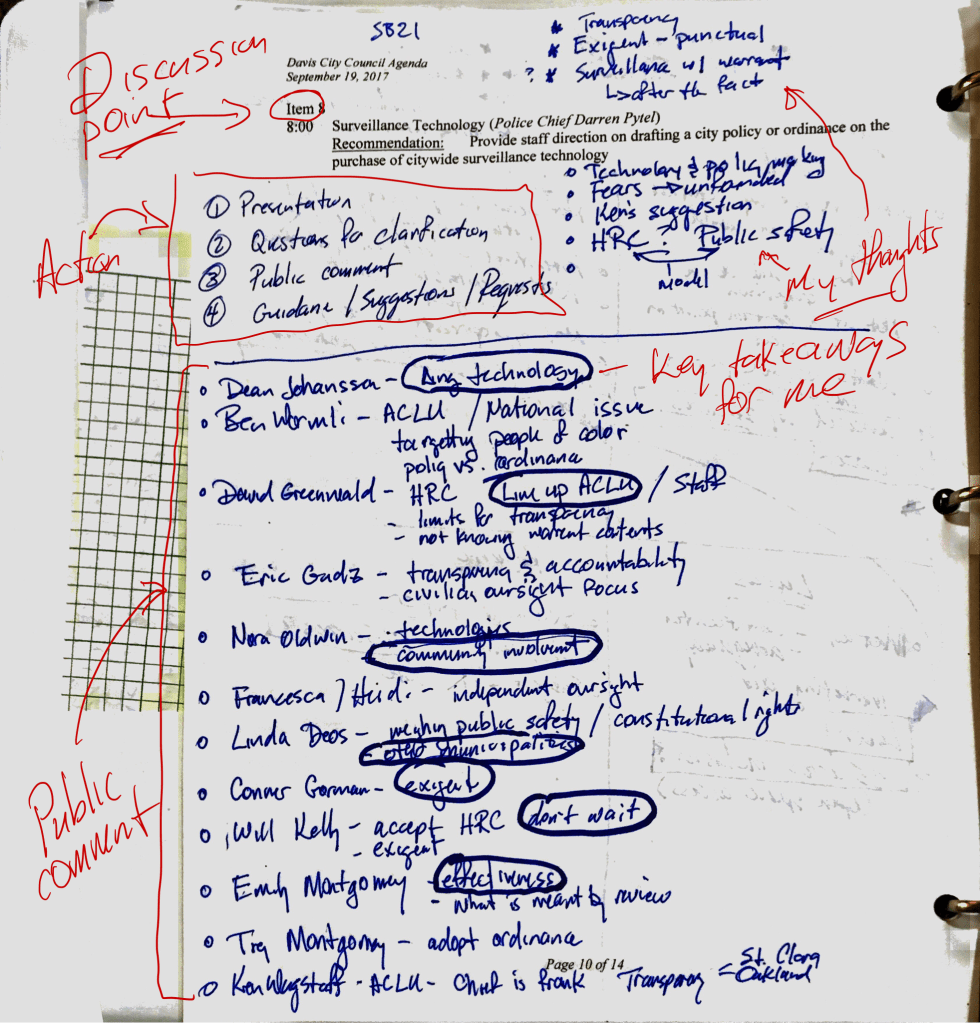 SB21
* Transparency
* Exigent - punctual
? * Surveillance w/ warrant
↳ after the fact
Discussion
point
Davis City Council Agenda
September 19, 2017
Item 8
8:00 Surveillance Technology (Police Chief Darren Pytel)
Recommendation: Provide staff direction on drafting a city policy or ordinance on the
purchase of citywide surveillance technology
Technology & policy making
Fears → unfounded
Ken's suggestion
HRC ? Public safety
Model
My thoughts
Action
① Presentation
② Questions for clarification
③ Public comment
④ Guidance / Suggestions / Requests
Key takeaways
for me
Dean Johansson - Any technology
Ben - ACLU / National issue
targetting people of color
policy vs. ordinance
David Greenwald - HRC Line up ACLU / Staff
- limits for transparency
- not knowing warrent contents
Eric Gudz - transparency & accountability
- civilian oversight focus
Nora Oldwin - technologies
community involvment
Francesca / Heidi - independent oversight
Linda Deos - weighing public safety / constitutional rights
- other municipalities
Connor Gorman - exigent
Will Kelly - accept HRC don't wait
- exigent
Emily Montgomery - effectiveness
- What is meant by review
Public
comment
Montgomery - adopt ordinance
Page 10 of 14
Ken Wagstaff - ACLU - Chief is frank Transparency = St. Clara
Oakland